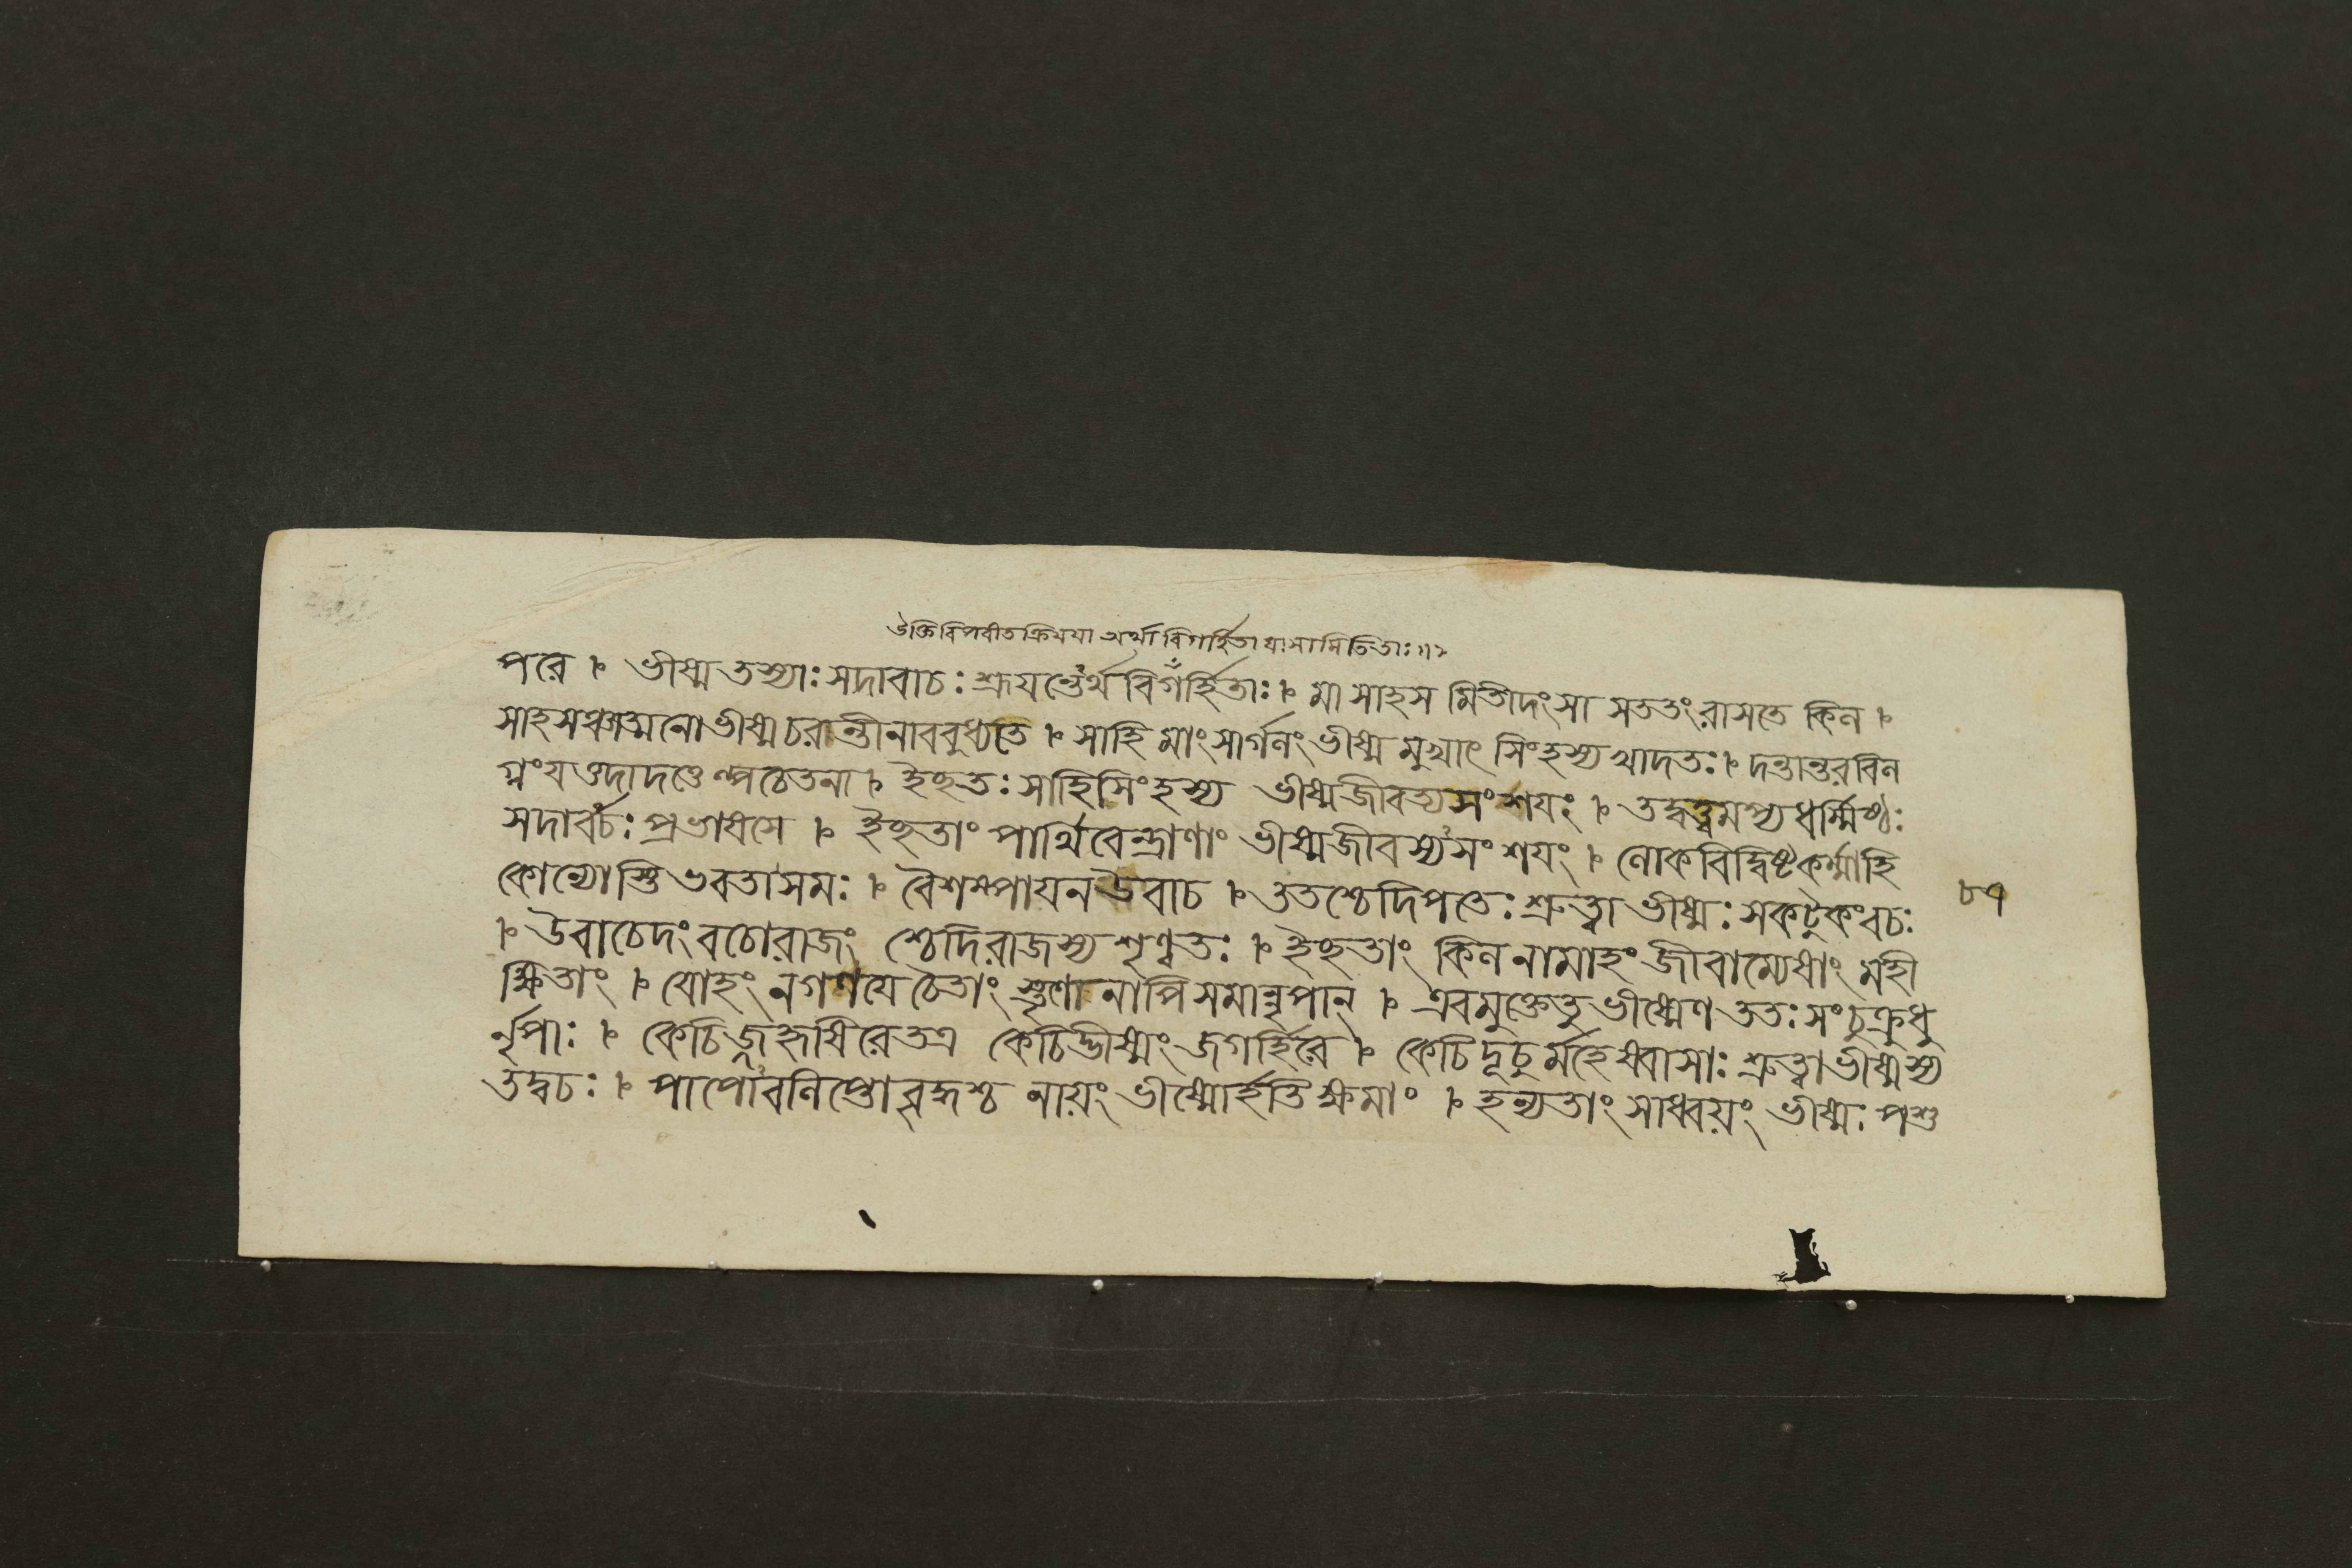 উক্তিবিপরীতক্রিযযা অর্থা বিগর্হিতা যাসামিতিতাঃ॥১
পরে । ভীষ্মতস্যাঃসদাবাচঃশ্রূযন্তেঽর্থবিগর্হিতাঃ । মা সাহস মিতীদংসা সততংরাসতে কিল ।
সাহসঞ্চাত্মনোভীষ্মচরন্তীনাববুধ্যতে । সাহি মাংসার্গলংভীষ্ম মুখাৎ সিংহস্যখাদতঃ । দন্তান্তরবিল
গ্নংযত্তদাদত্তেল্পচেতনা । ইচ্ছতঃ সাহিসিংহস্য ভীষ্মজীবত্যসংশযং । তদ্বত্ত্বমপ্যধর্ম্মিষ্ঠঃ
সদাবাচঃ প্রভাষসে । ইচ্ছতাং পার্থিবেন্দ্রাণাং ভীষ্মজীবস্যসংশযং । লোকবিদ্বিষ্টকর্ম্মাহি
কোন্যোস্তি ভবতাসমঃ । বৈশম্পাযনউবাচ । ততশ্চেদিপতেঃ শ্রুত্বা ভীষ্মঃ সকটুকংবচঃ
৮৭
। উবাচেদংবচোরাজং শ্চেদিরাজস্য শৃণ্বতঃ । ইচ্ছতাং কিল নামাহং জীবাম্যেষাং মহী
ক্ষিতাং । যোহং নগণযে চৈতাং স্তৃণো নাপি সমান্নৃপান্ । এবমুক্তেতু ভীষ্মেণ ততঃ সংচুক্রুধু
র্নৃপাঃ । কেচিজ্জহৃষিরেতত্র কেচিদ্ভীষ্মং জগর্হিরে । কেচিদূচুর্মহেষ্বাসাঃ শ্রুত্বাভীষ্মস্য
তদ্বচঃ । পাপোঽবলিপ্তো বৃদ্ধশ্চ নায়ং ভীষ্মোর্হতি ক্ষমাং । হন্যতাং সাধ্বয়ং ভীষ্মঃ পশু